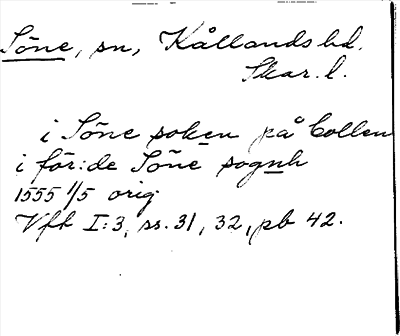 Sōne, sn, Kållands hd.
Skar. l.
i Sōne soken på Collen
i för:de Sōne sognh
1555 1/5 orig
Vfh I:3, ss. 31, 32, pb 42.